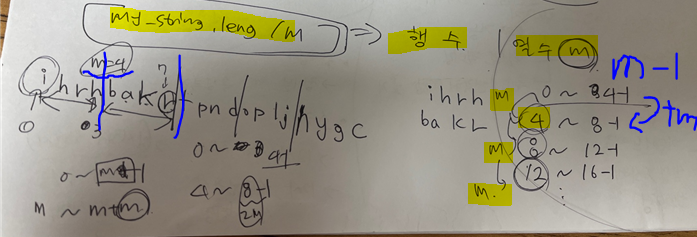 my_string.leng /m ⇒ 행 수 | 열수 m
m=4
7
ihrhbakrfpndoplj/nygc
0 3
0 ~ 4-1
0 ~ m-1
4 ~ 8-1
2M
M ~ m+m
m-1
ihrh m 0 ~ 4-1
+m
bakr 4 ~ 8-1
m 8 ~ 12-1
m. 12 ~ 16-1
⋮